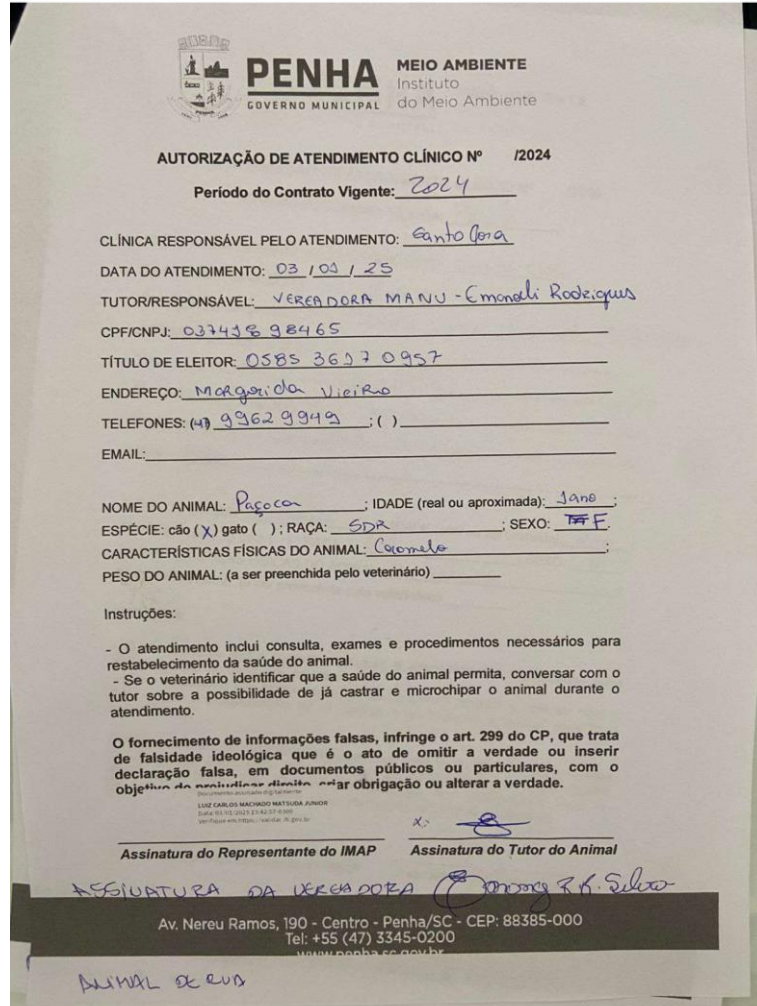 PENHA
GOVERNO MUNICIPAL
MEIO AMBIENTE
Instituto
do Meio Ambiente
AUTORIZAÇÃO DE ATENDIMENTO CLÍNICO Nº /2024
Período do Contrato Vigente: 2024
CLÍNICA RESPONSÁVEL PELO ATENDIMENTO: Santo
DATA DO ATENDIMENTO: 03 / 01 / 25
TUTOR/RESPONSÁVEL: VEREADORA MANU - Rodrigues
CPF/CNPJ:
TÍTULO DE ELEITOR:
ENDEREÇO: Margarida Vieira
TELEFONES: (47) 99629949 ; ( )
EMAIL:
NOME DO ANIMAL: Paçoca ; IDADE (real ou aproximada): 1 ano ;
ESPÉCIE: cão (X) gato ( ) ; RAÇA: SDR ; SEXO: F.
CARACTERÍSTICAS FÍSICAS DO ANIMAL: Caramelo ;
PESO DO ANIMAL: (a ser preenchida pelo veterinário)
Instruções:
- O atendimento inclui consulta, exames e procedimentos necessários para
restabelecimento da saúde do animal.
- Se o veterinário identificar que a saúde do animal permita, conversar com o
tutor sobre a possibilidade de já castrar e microchipar o animal durante o
atendimento.
O fornecimento de informações falsas, infringe o art. 299 do CP, que trata
de falsidade ideológica que é o ato de omitir a verdade ou inserir
declaração falsa, em documentos públicos ou particulares, com o
objetivo de prejudicar direito, criar obrigação ou alterar a verdade.
Documento assinado digitalmente
LUIZ CARLOS MACHADO MATSUDA JUNIOR
Assinatura do Representante do IMAP
x:
Assinatura do Tutor do Animal
ASSINATURA DA VEREADORA
Av. Nereu Ramos, 190 - Centro - Penha/SC - CEP: 88385-000
Tel: +55 (47) 3345-0200
www.penha.sc.gov.br
ANIMAL DE RUA